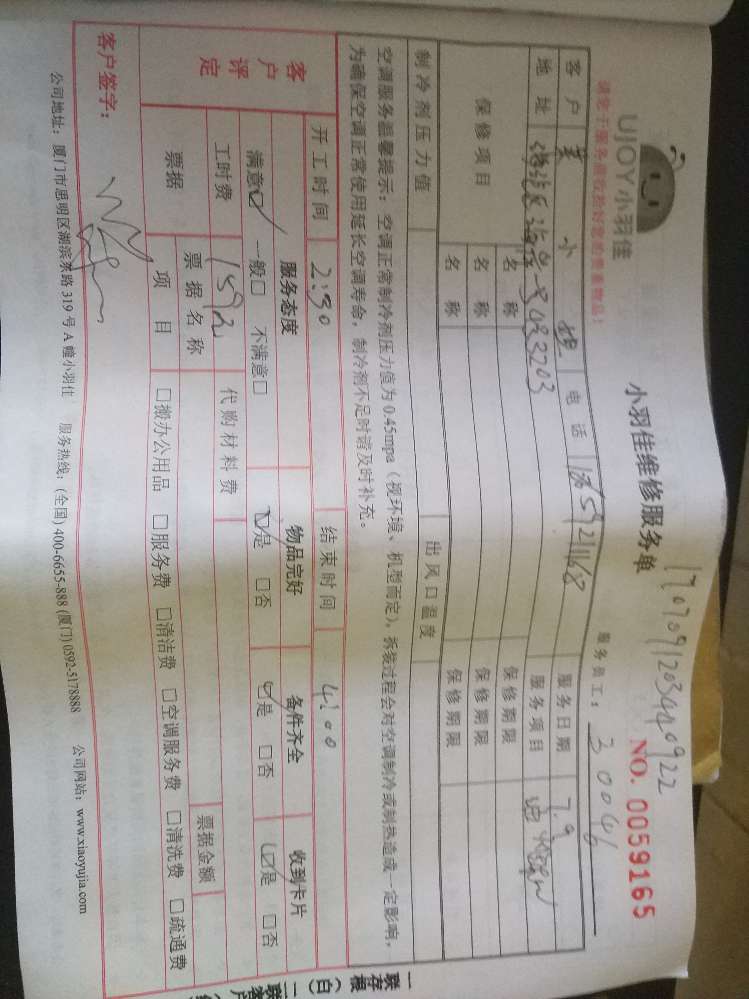 请您于服务前收拾好您的贵重物品！
UJOY小羽佳
小羽佳维修服务单
NO. 0059165
服务员工：30046
客户 小姐 电话 服务日期 7.9
地址 3203 服务项目
保修项目 名称 保修期限
名称 保修期限
名称 保修期限
制冷剂压力值 出风口温度
空调服务温馨提示：空调正常制冷剂压力值为0.45mpa（视环境、机型而定），拆装过程会对空调制冷或制热造成一定影响，
为确保空调正常使用延长空调寿命，制冷剂不足时请及时补充。
开工时间 2:30 结束时间 4:00
客户评定 服务态度 物品完好 备件齐全 收到卡片
满意☑ 一般□ 不满意□ ☑是 □否 ☑是 □否 ☑是 □否
工时费 代购材料费
票据 票据名称 票据金额
项目 □搬办公用品 □服务费 □清洁费 □空调服务费 □清洗费 □疏通费
客户签字：
公司地址：厦门市思明区湖滨东路319号A幢小羽佳 服务热线：(全国) 400-6655-888 (厦门) 0592-5178888 公司网站：www.xiaoyujia.com
一联存根（白）二联客户